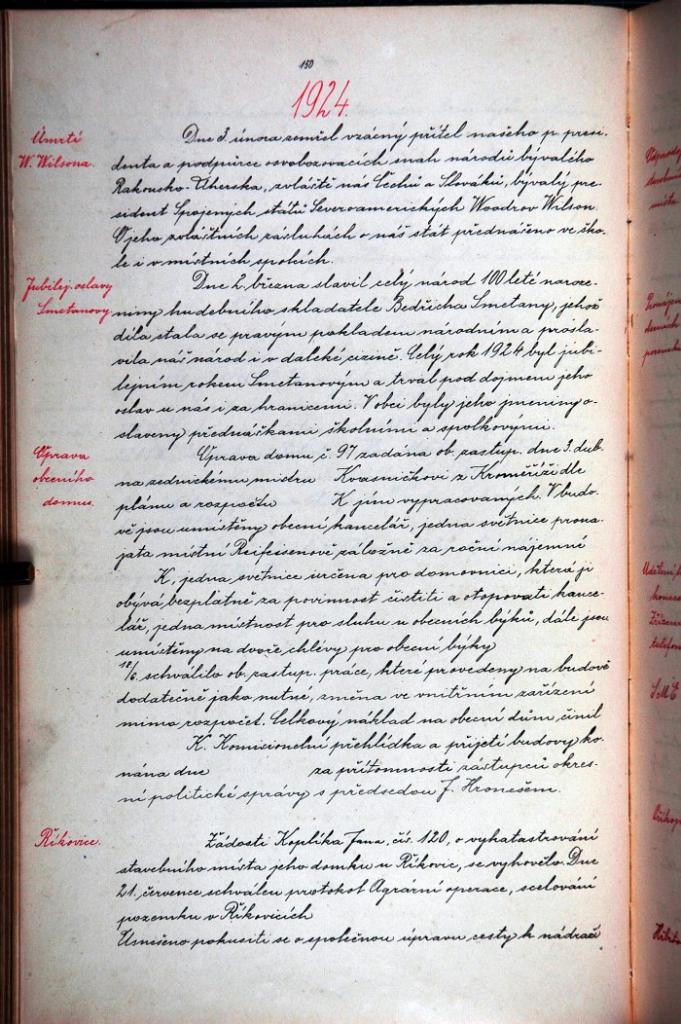 150
1924.
Úmrtí
W. Wilsona.
Dne 3. února zemřel vzácný přítel našeho p. presi-
denta a podpůrce osvobozovacích snah národů bývalého
Rakousko-Uherska, zvláště nás Čechů a Slováků, bývalý pre-
sident Spojených států Severoamerických Woodrov Wilson.
O jeho zvláštních zásluhách o náš stát přednášeno ve ško-
le i v místních spolcích.
Jubilej. oslavy
Smetanovy
Dne 2. března slavil celý národ 100 leté naroze-
niny hudebního skladatele Bedřicha Smetany, jehož
díla stala se pravým pokladem národním a prosla-
vila náš národ i v daleké cizině. Celý rok 1924 byl jubi-
lejním rokem Smetanovým a trval pod dojmem jeho
oslav u nás i za hranicemi. V obci byly jeho jmeniny o-
slaveny přednáškami školními a spolkovými.
Oprava
obecního
domu.
Oprava domu č. 97 zadána ob. zastup. dne 3. dub-
na zednickému mistru Kvasničkovi z Kroměříže dle
plánu a rozpočtu K jím vypracovaných. V budo-
vě jsou umístěny obecní kancelář, jedna světnice prona-
jata místní Reifeisenově záložně za roční nájemné
K, jedna světnice určena pro domovnici, která ji
obývá bezplatně za povinnost čistiti a otopovati kance-
lář, jedna místnost pro sluhu u obecních býků, dále jsou
umístěny na dvoře chlévy pro obecní býky
12/6. schválilo ob. zastup. práce, které provedeny na budově
dodatečně jako nutné, změna ve vnitřním zařízení
mimo rozpočet. Celkový náklad na obecní dům činil
K. Komisionelní přehlídka a přijetí budovy ko-
nána dne za přítomnosti zástupců okres-
ní politické správy s předsedou J. Hronešem.
Říkovice.
Žádosti Koplíka Jana, čís. 120, o vykatastrování
stavebního místa jeho domku u Říkovic, se vyhovělo. Dne
21. července schválen protokol Agrární operace, scelování
pozemku v Říkovicích
Usnešeno pokusiti se o společnou úpravu cesty k nádraží